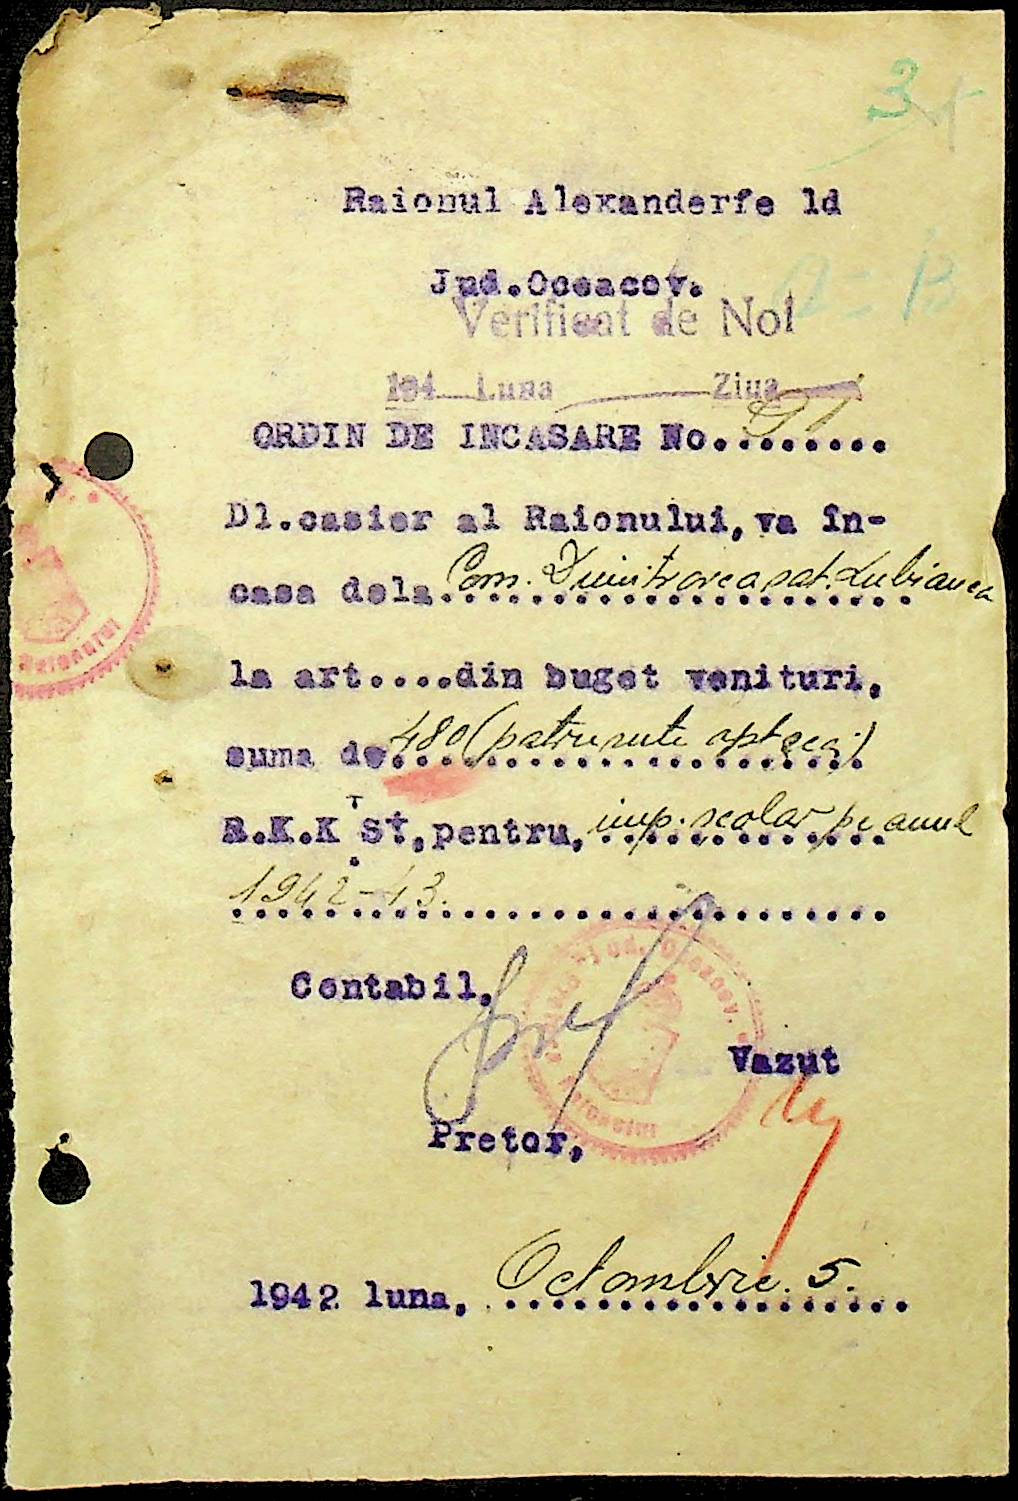 3
Raionul Alexanderfe ld
Jud.Oceacov.
Verificat de Noi
194 Luna Ziua
ORDIN DE INCASARE No........
Dl.casier al Raionului,va în-
casa dela Com. Dumitrovca sat. Lubianca
la art....din buget venituri,
suma de 480 (patrusute optzeci)
R.K.K St,pentru, imp. scolar pe anul
1942-43.
Contabil,
Jud. Oceacov.
Raionului
Vazut
Pretor,
Raionului
1942 luna, Octombrie. 5.